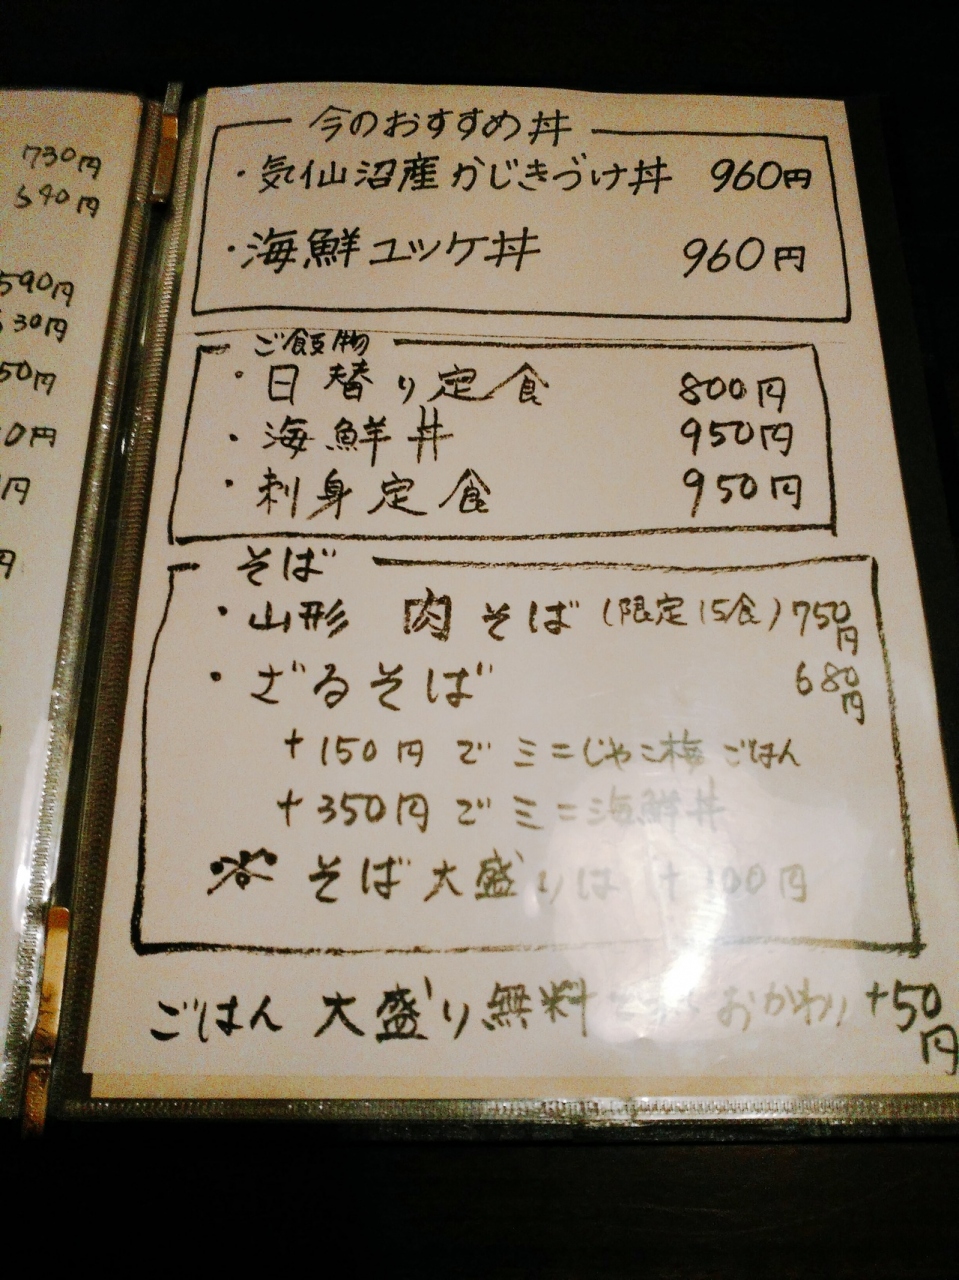 730円
590円
今のおすすめ丼
・気仙沼産かじきづけ丼 960円
・海鮮ユッケ丼 960円
ご飯物
・日替り定食 800円
・海鮮丼 950円
・刺身定食 950円
そば
・山形 肉そば (限定15食) 750円
・ざるそば 680円
+150円でミニじゃこ梅ごはん
+350円でミニ海鮮丼
※ そば大盛りは +100円
ごはん 大盛り無料 おかわり +50円